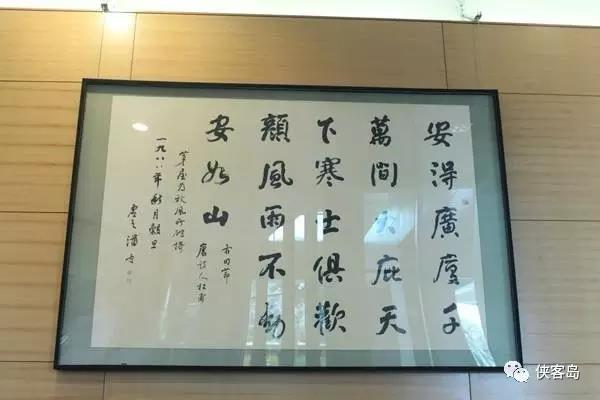 安得廣廈千
萬間大庇天
下寒士俱歡
顏風雨不動
安如山
唐詩人杜甫
茅屋為秋風所破歌
一九八八年秋月
侠客岛